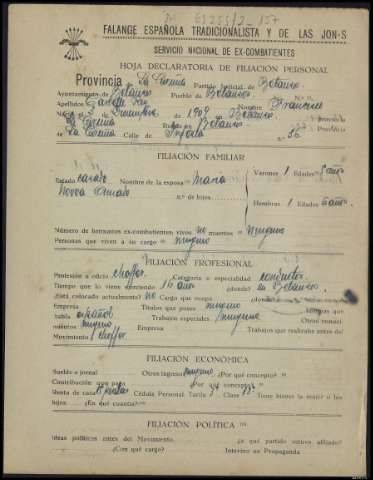 FALANGE ESPAÑOLA TRADICIONALISTA Y DE LAS JON-S
SERVICIO NACIONAL DE EX-COMBATIENTES
HOJA DECLARATORIA DE FILIACIÓN PERSONAL
Provincia de La Coruña Partido Judicial de Betanzos
Ayuntamiento de Betanzos Pueblo de Betanzos
Apellidos Nombre Francisco
de 1909 en Betanzos
La Coruña Betanzos Provincia
La Coruña Calle de n.º 36
FILIACIÓN FAMILIAR
Estado casado Nombre de la esposa María Varones 1 Edades 8 años
n.º de hijos
Hembras 1 Edades 6 años
Número de hermanos ex-combatientes vivos no muertos ninguno
Personas que viven a su cargo ninguno
FILIACIÓN PROFESIONAL
Profesión u oficio choffer Categoría o especialidad conductor
Tiempo que lo viene ejerciendo 16 años ¿dónde? en Betanzos
¿Está colocado actualmente? no Cargo que ocupa ¿dónde?
Empresa Títulos que posee ninguno Qué idiomas
habla español Trabajos especiales ninguno Otros conoci-
mientos ninguno Empresa Trabajos que realizaba antes del
Movimiento choffer
FILIACIÓN ECONÓMICA
Sueldo o jornal Otros ingresos ninguno ¿Por qué concepto?
Contribución que paga ¿Por qué concepto?
Renta de casa Cédula Personal Tarifa Clase 13 Tiene bienes la mujer o los
hijos ¿En qué cuantía?
FILIACIÓN POLÍTICA
Ideas políticas antes del Movimiento ¿a qué partido estuvo afiliado?
¿Con qué cargo? Intervino en Propaganda